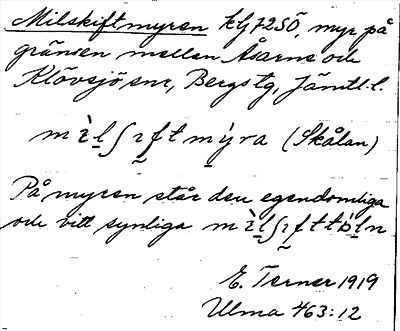 Milskiftmyren kfJ2SÖ, myr på
gränsen mellan Åsarne och
Klövsjö snr, Bergs tg, Jämtl. l.
(Skålan)
På myren står den egendomliga
och vitt synliga
E. Terner 1919
Ulma 463:12